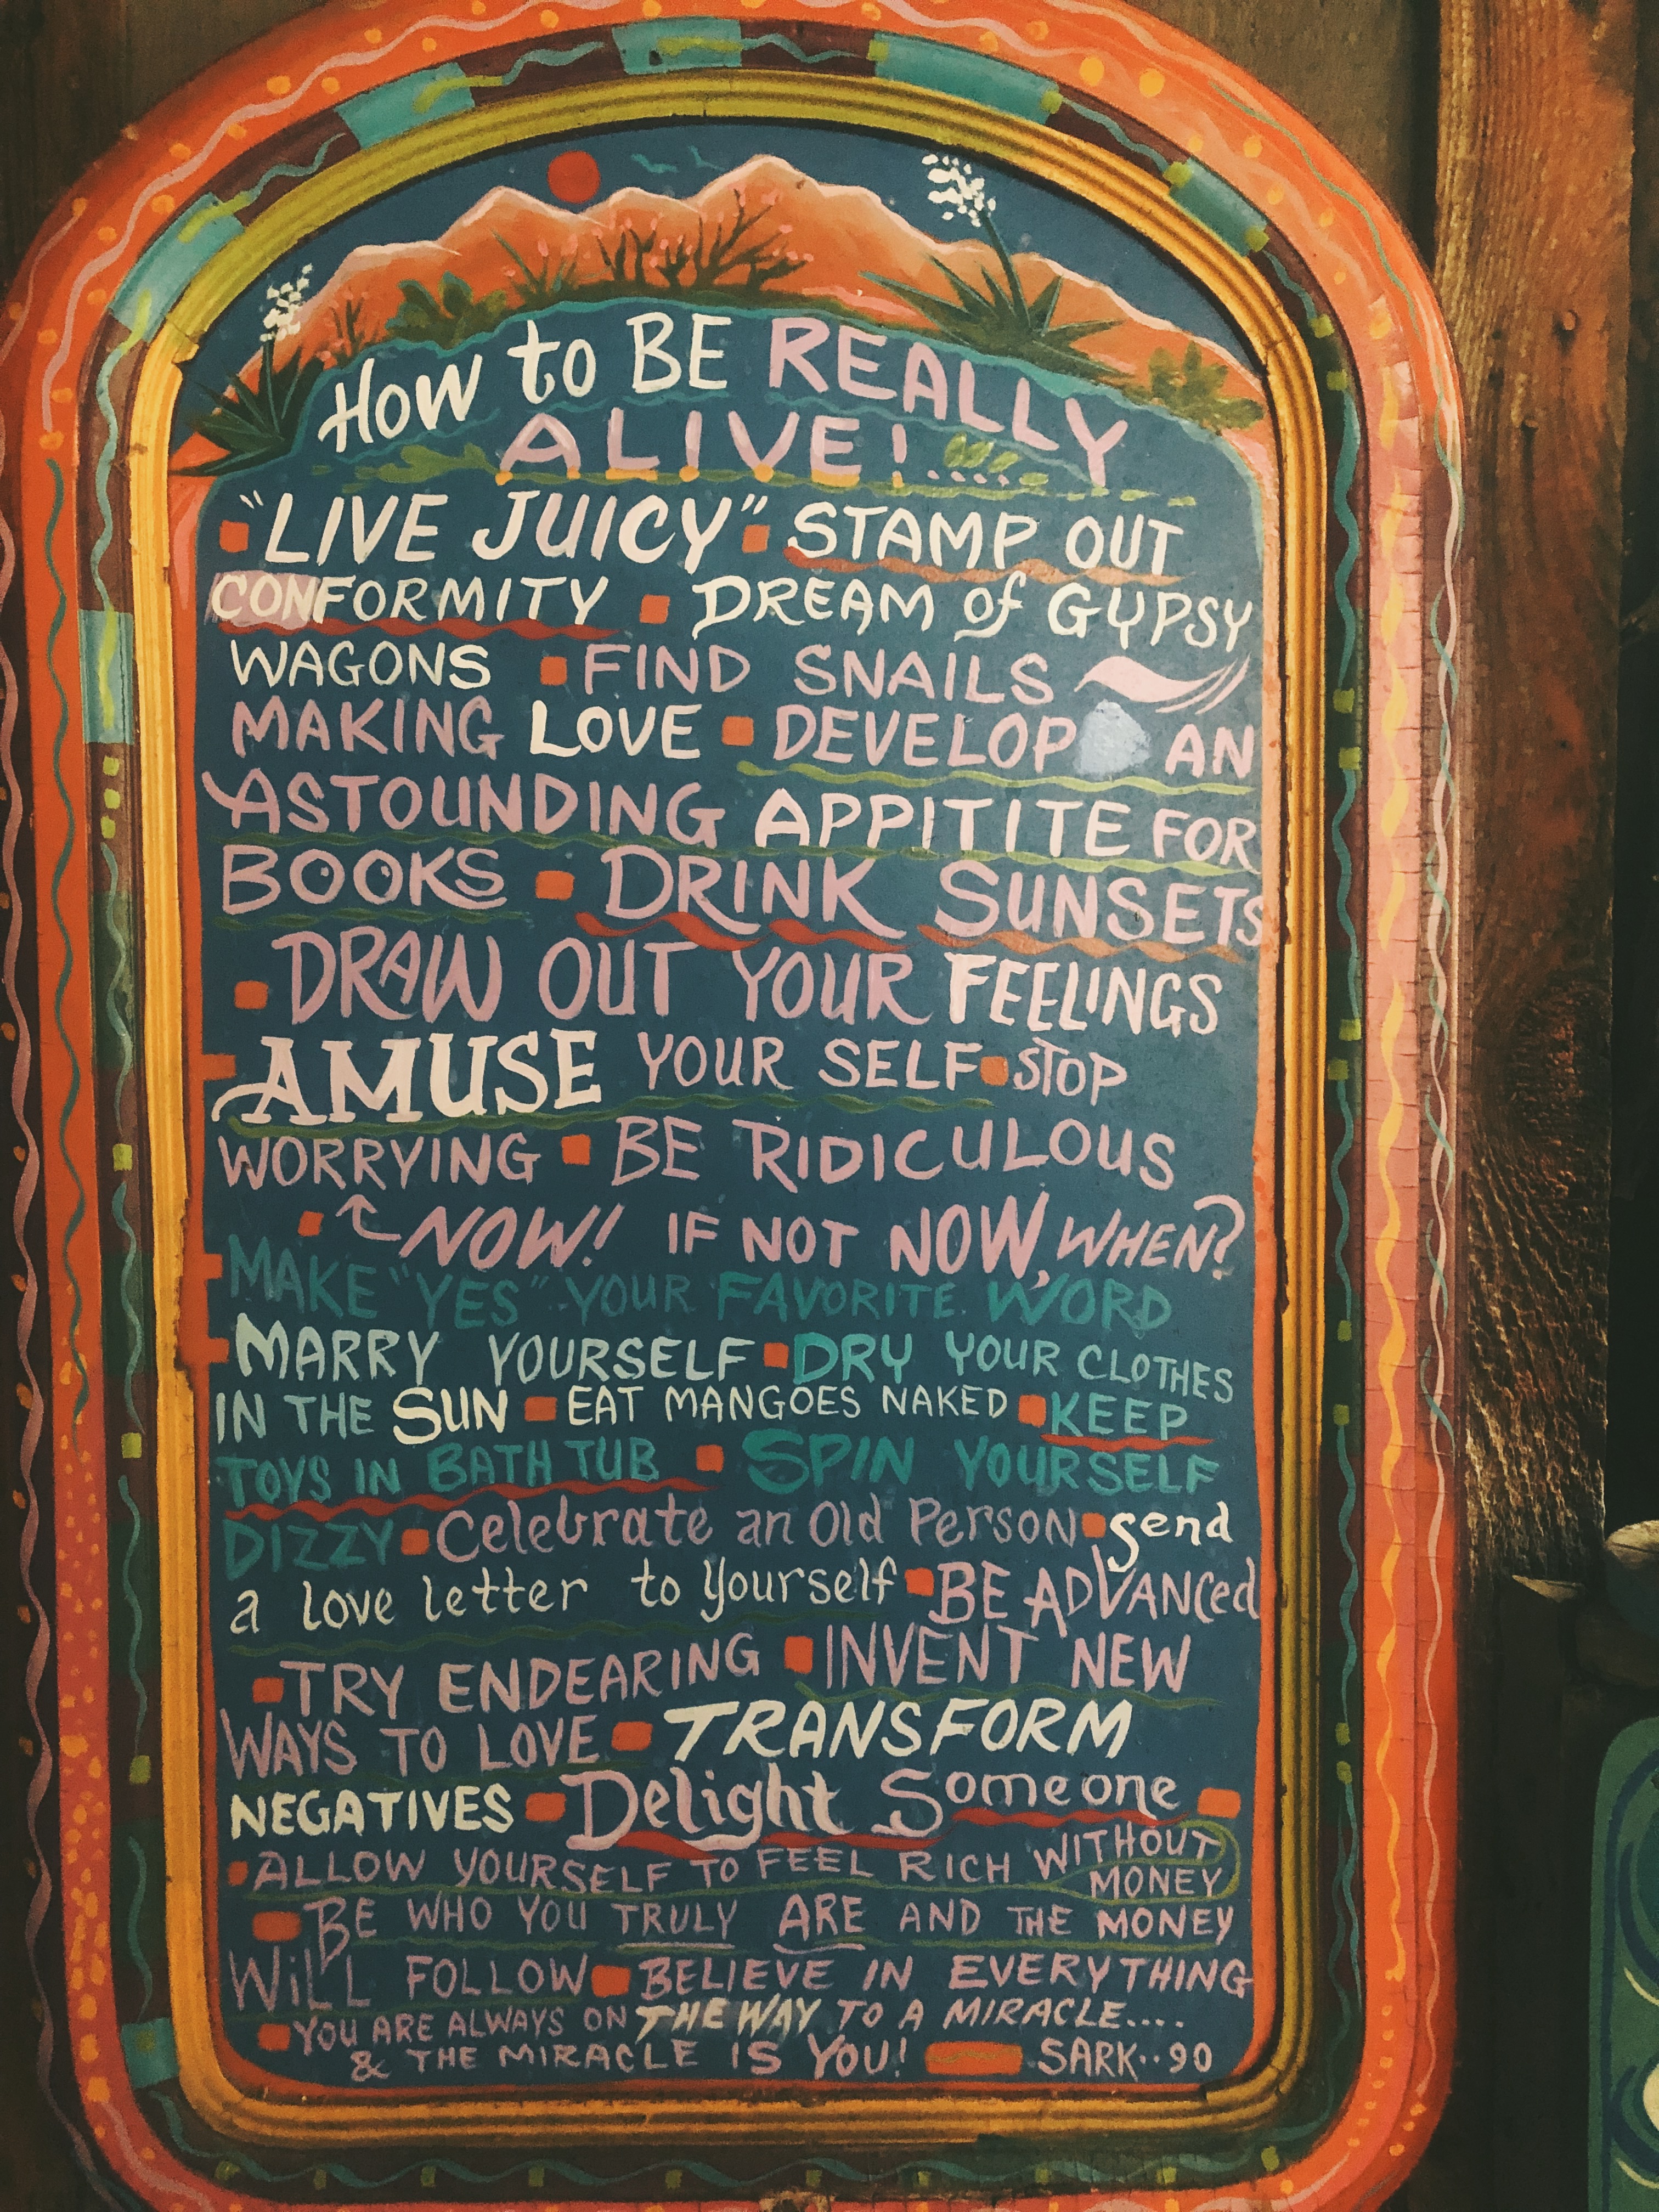 How to BE REALLY
ALIVE!....
"LIVE JUICY" STAMP OUT
CONFORMITY DREAM of GYPSY
WAGONS FIND SNAILS
MAKING LOVE DEVELOP AN
ASTOUNDING APPITITE FOR
BOOKS DRINK SUNSETS
DRAW OUT YOUR FEELINGS
AMUSE YOUR SELF STOP
WORRYING BE RIDICULOUS
NOW! IF NOT NOW, WHEN?
MAKE "YES" YOUR FAVORITE WORD
MARRY YOURSELF DRY YOUR CLOTHES
IN THE SUN EAT MANGOES NAKED KEEP
TOYS IN BATH TUB SPIN YOURSELF
DIZZY Celebrate an Old Person send
a love letter to yourself BE ADVANCed
TRY ENDEARING INVENT NEW
WAYS TO LOVE TRANSFORM
NEGATIVES Delight Someone
ALLOW YOURSELF TO FEEL RICH WITHOUT
MONEY
BE WHO YOU TRULY ARE AND THE MONEY
WiLL FOLLOW BELIEVE IN EVERYTHING
YOU ARE ALWAYS ON THE WAY TO A MIRACLE....
& THE MIRACLE IS YOU! SARK··90